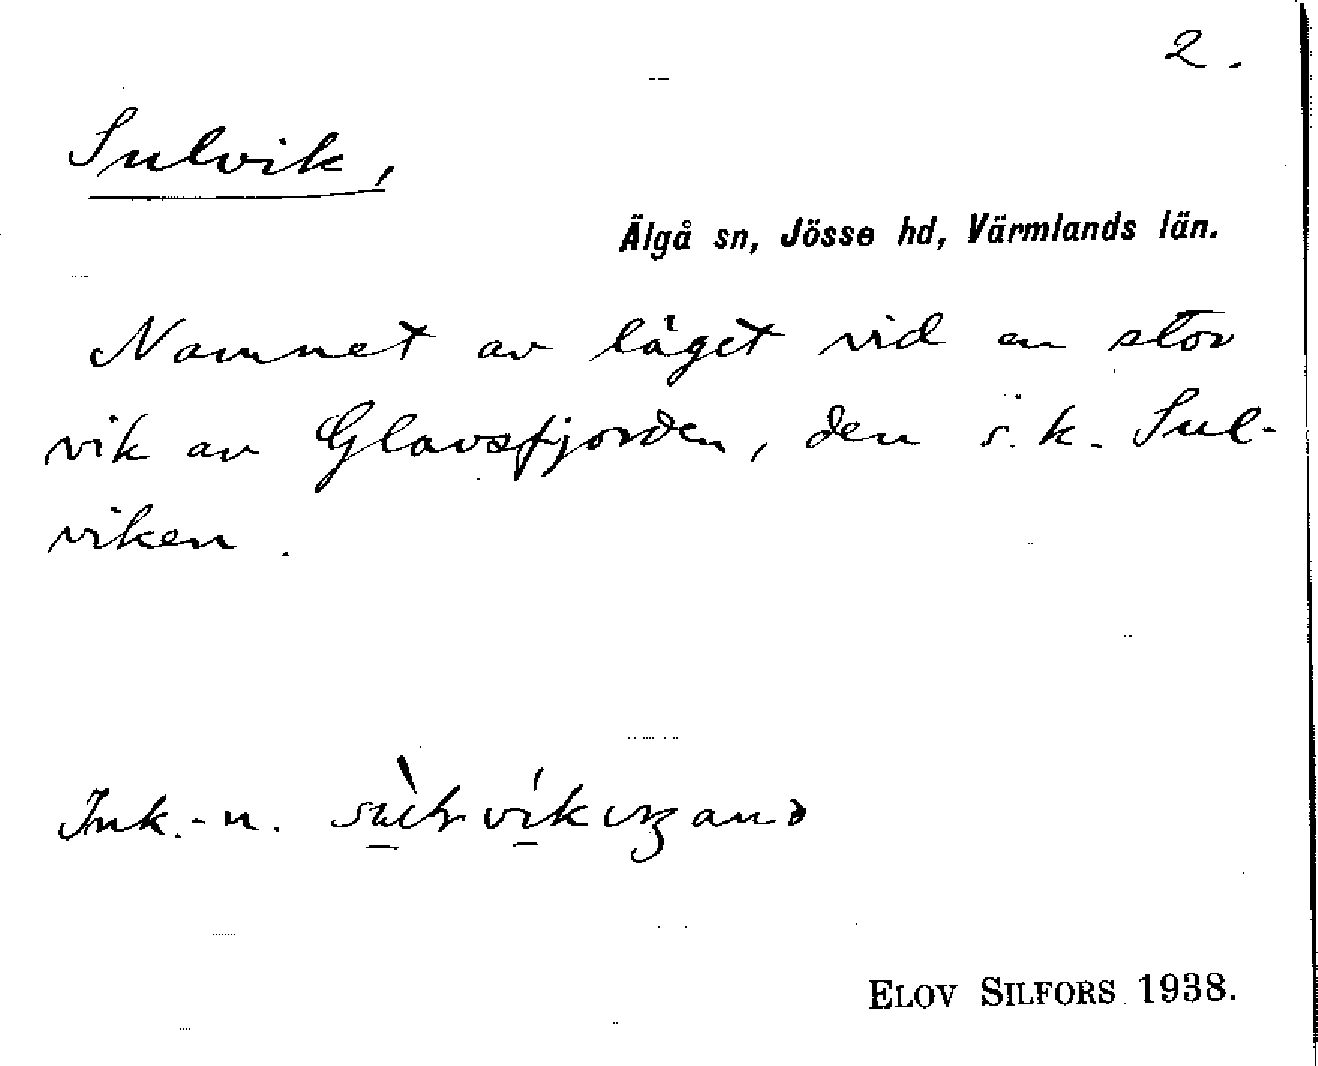 2.
Sulvik,
Älgå sn, Jösse hd, Värmlands län.
Namnet av läget vid en stor
vik av Glavsfjorden, den s.k. Sul-
viken.
Ink.-n.
ELOV SILFORS 1938.